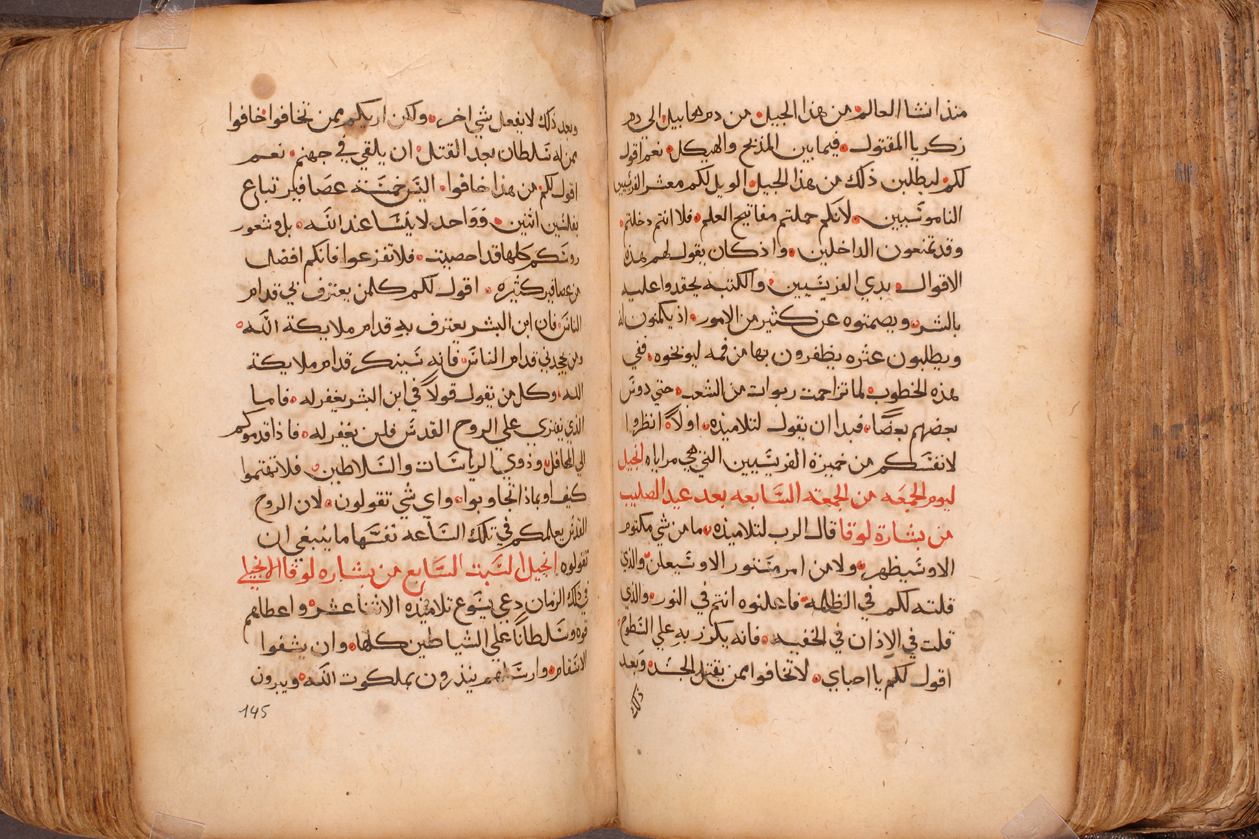 منذ انشا العالم من هذا الجيل من دم هابيل الى دم
زكريا المقتول فيما بين المذبح والهيكل نعم اقول
لكم ليطلبن ذلك من هذا الجيل الويل لكم معشر الفريسيين
الناموسيين لانكم حملتم مفاتيح العلم فلا انتم دخلتم
وقد تمنعون الداخلين واذ كان يقول لهم هذه
الاقوال بدي الفريسيين والكتبه يحقدوا عليه
بالشر ويصمتوه عن كثير من الامور اذ يكمنون له
ويطلبون عثره يظفرون بها من فمه ليوبخوه ففي
هذه الخطوب لما تزاحمت ربوات من الشعب حتي دوس
بعضهم بعضًا فبدا ان يقول لتلاميذه اولاً انظروا
لانفسكم من خميرة الفريسيين التي هي مراياه انجيل
ليوم الجمعه من الجمعه السابعه بعد عيد الصليب
من بشارة لوقا قال الرب لتلاميذه ما من شي مكتوم
الا وسيظهر ولا من امر مستور الا وسيعلن والذي
قلته لكم في الظلمه فاعلنوه انتم في النور والذي
قلت في الاذان في الخفيه فانه يكرز به علي السطوح
اقول لكم يا احباي لا تخافوا ممن يقتل الجسد وبعد
ذلك
وبعد ذلك لا يفعل شي اخر ولكن اريكم ممن تخافوا خافوا
ممن له سلطان بعد القتل ان يلقي في جهنم نعم
اقول لكم من هذا خافوا اليس خمسه عصافير تباع
بفلسين اثنين وواحد لا ينسا عند الله بل وشعور
روسكم كلها قد احصيت فلا تفزعوا فانكم افضل
من عصافير كثيره اقول لكم كلمن يعترف بي قدام
الناس فان ابن البشر يعترف به قدام ملايكة الله
ومن يجحدني قدام الناس فانه سينكر قدام ملايكة
الله وكل من يقول قولاً في ابن البشر يغفر له فاما
الذي يفتري علي الروح القدس فلن يغفر له فاذا قدموكم
الي المحافل وذوي الرياسات والسلاطين فلا تهتموا
كيف او بماذا تجاوبوا واي شي تقولون لان الروح
القدس يعلمكم في تلك الساعه نفسها ما ينبغي ان
تقولوه انجيل السبت السابع من بشاره لوقا الانجيلي
في ذلك الزمان دعي يسوع تلاميذه الاثنا عشر واعطاهم
قوه وسلطانًا علي الشياطين كلها وان يشفوا
الاسقام وارسلهم ينذرون بملكوت الله ويبرون
145